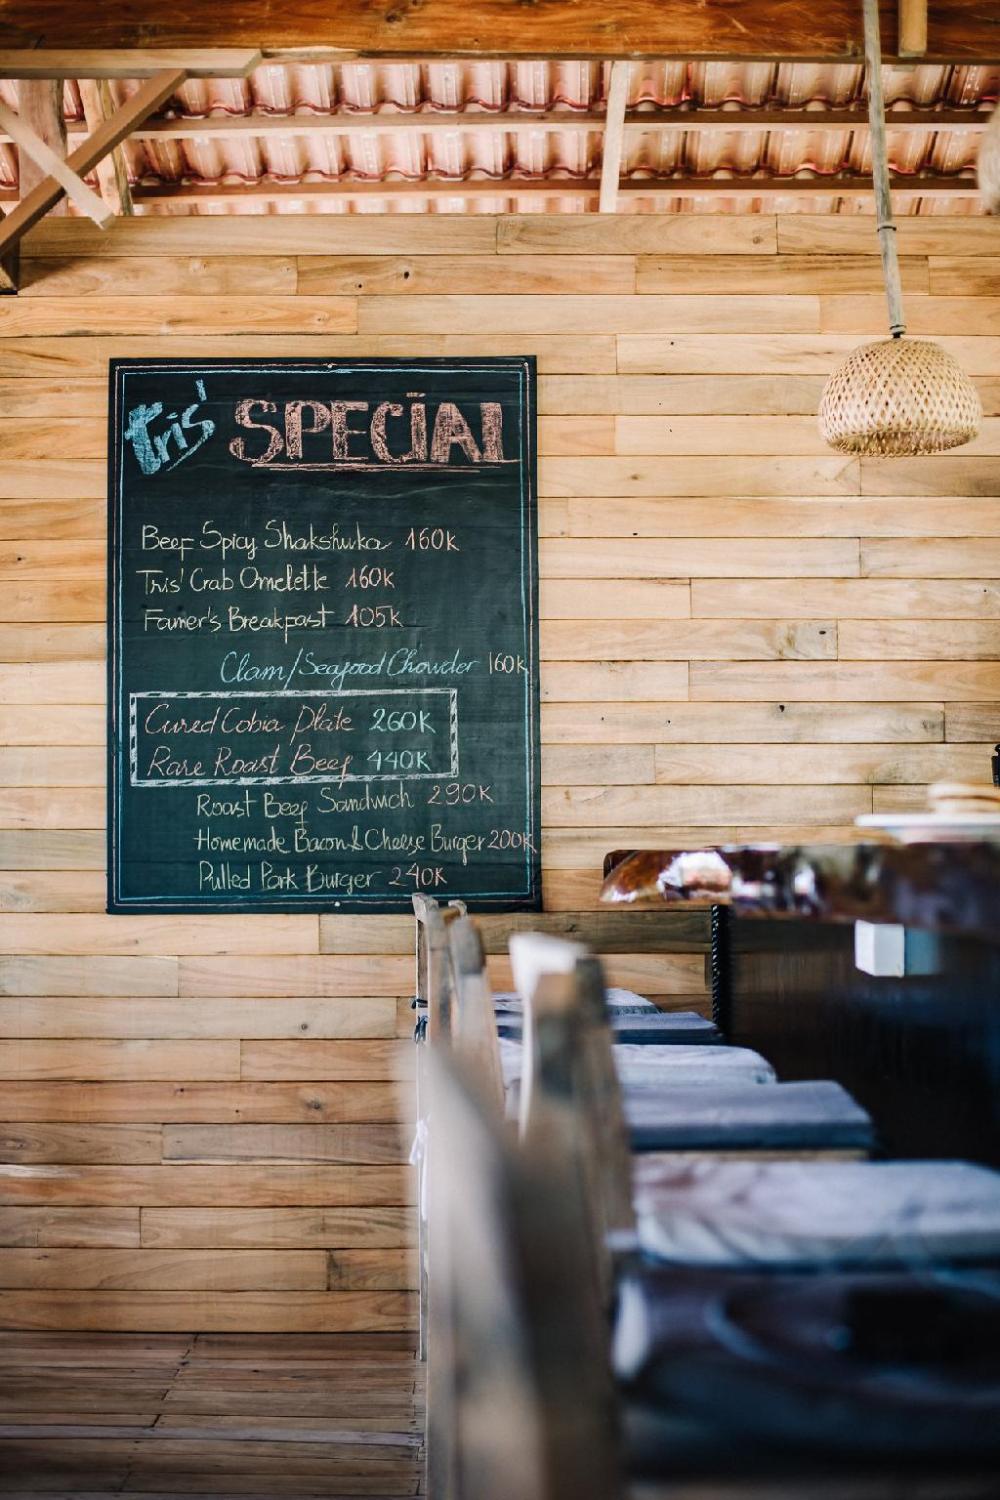 Tris' SPECIAL
Beef Spicy Shakshuka 160K
Tris' Crab Omelette 160K
Famer's Breakfast 105K
Clam/Seafood Chowder 160K
Cured Cobia Plate 260K
Rare Roast Beef 440K
Roast Beef Sandwich 290K
Homemade Bacon & Cheese Burger 200K
Pulled Pork Burger 240K